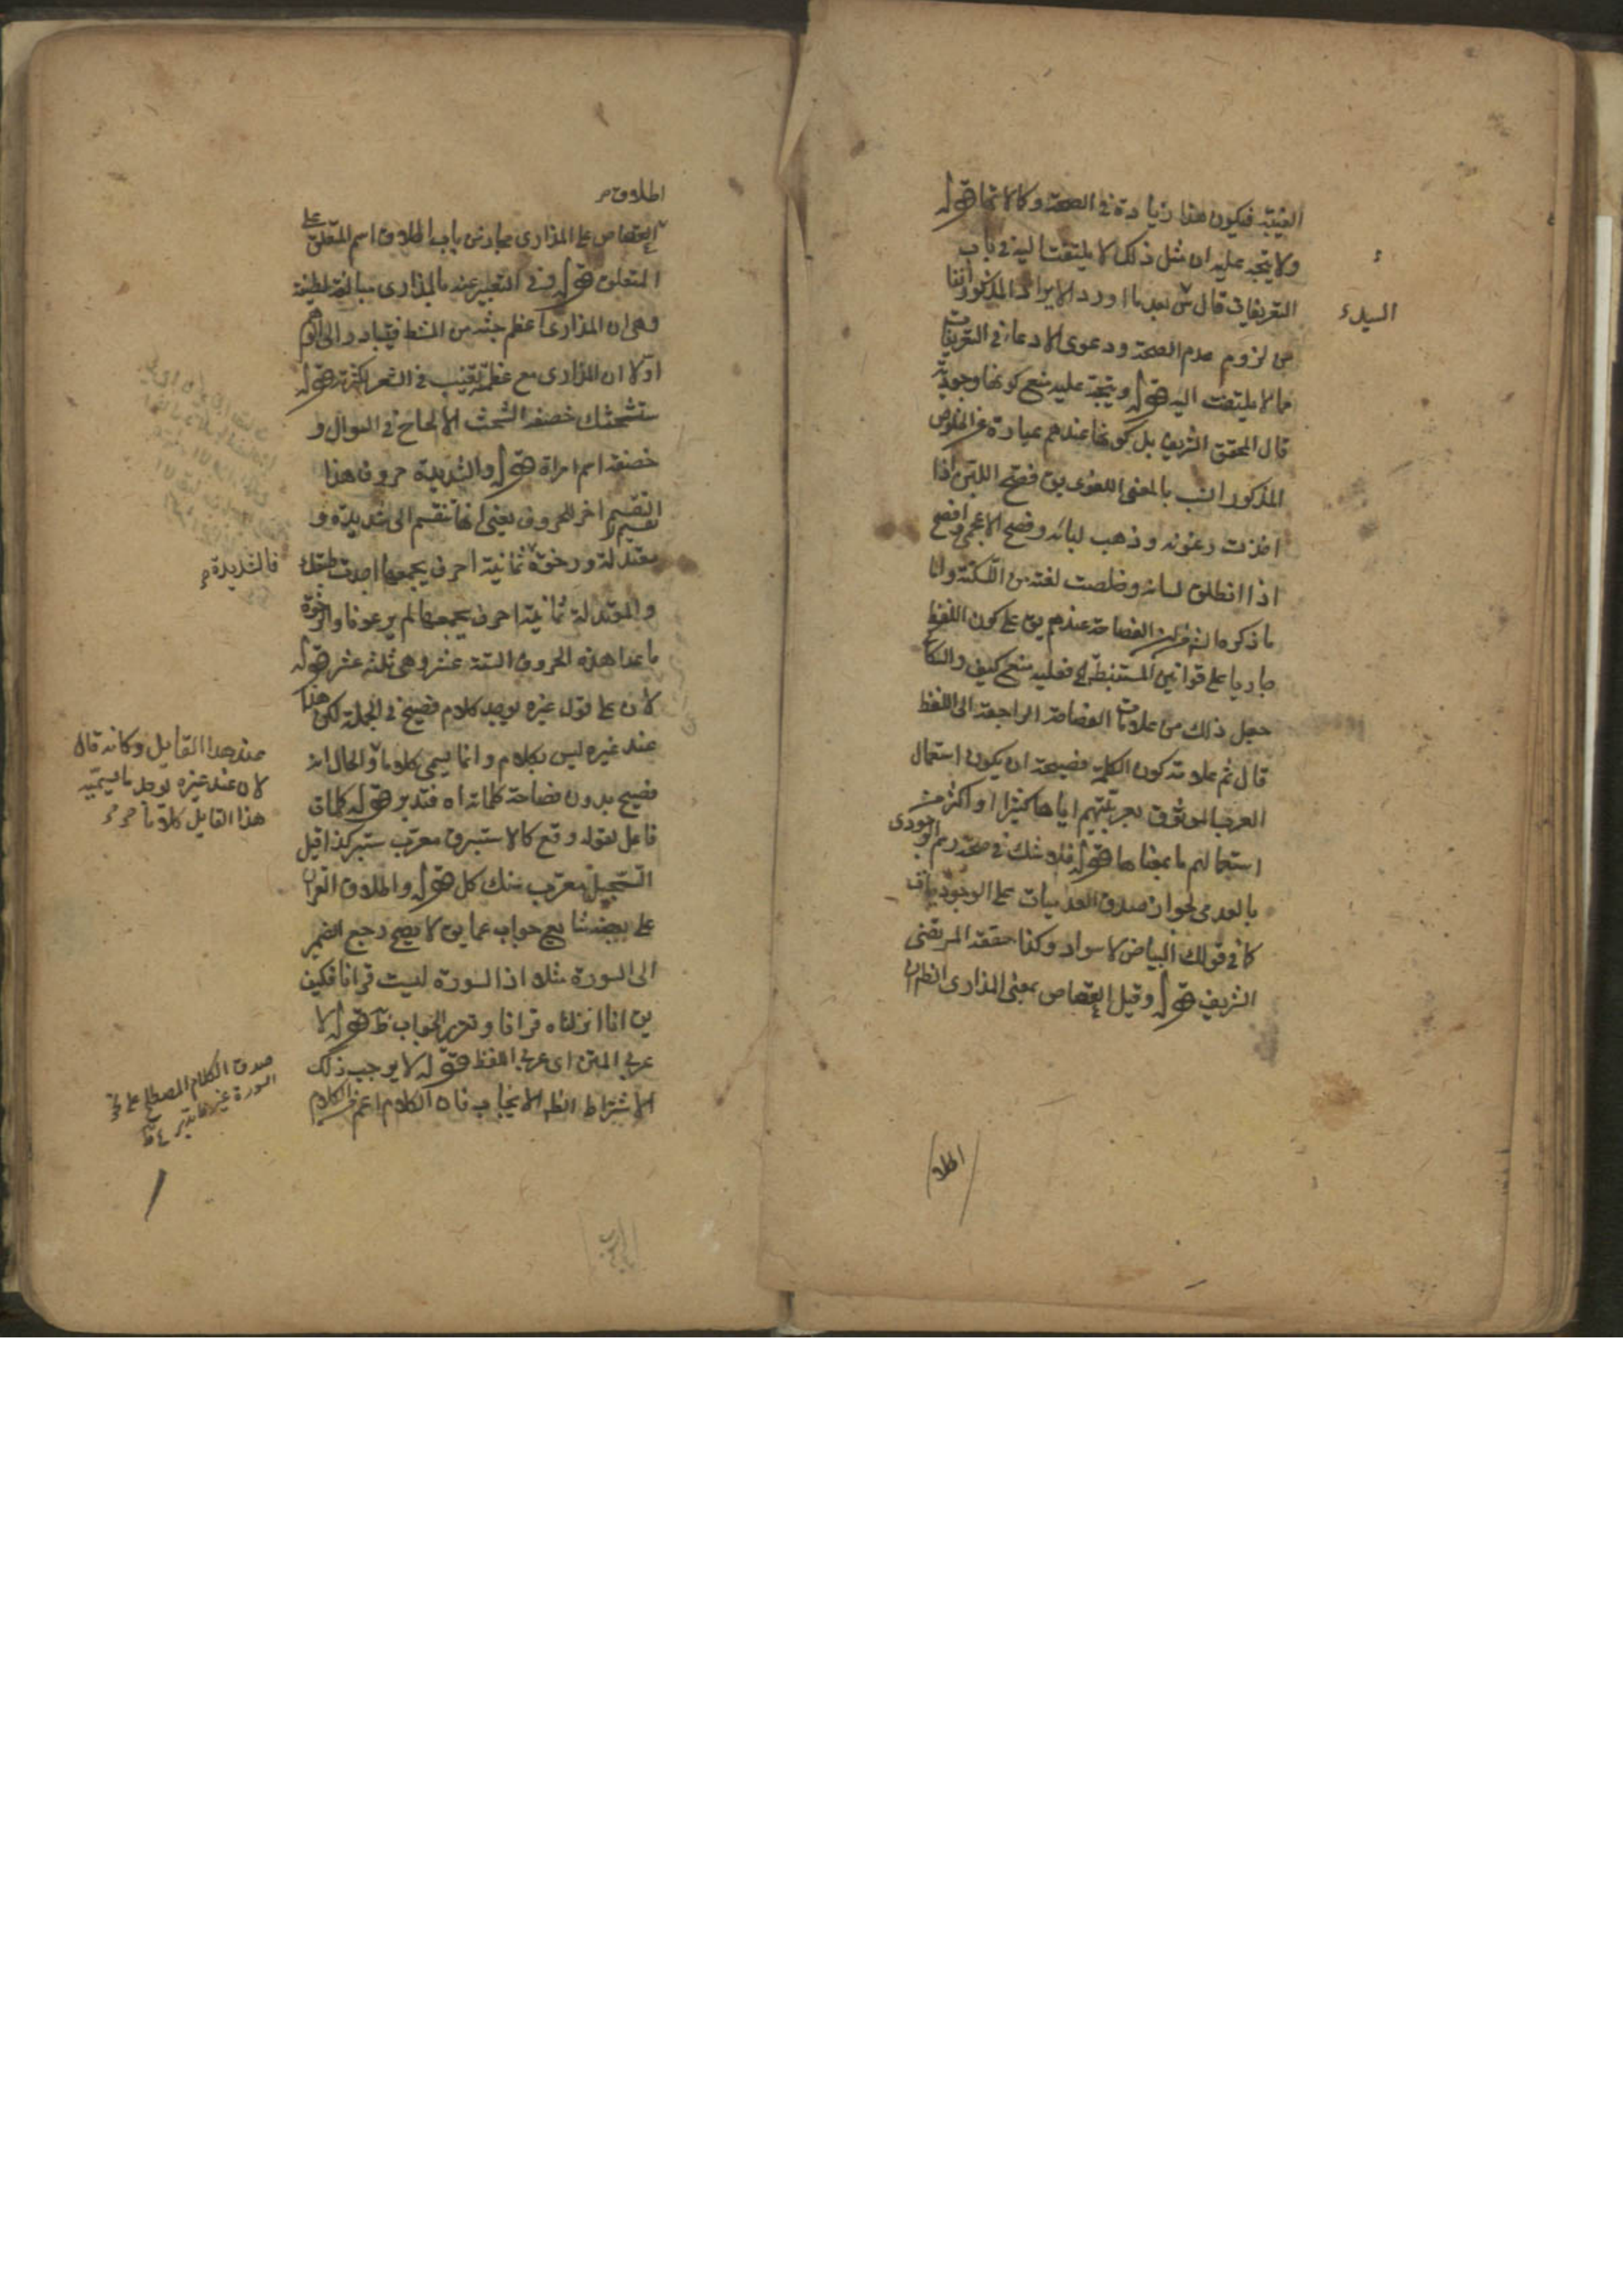 الغيبة فيكون هذا زيادة في الصحة وكالاتها قوله
ولا يتجه عليه ان مثل ذلك لا يلتفت اليه في باب
التعريفات قال بعد ما اورد الايراد المذكور آنفا
السيد
من لزوم عدم الصحة ودعوى الادعاء في التعريفات
مما لا يلتفت اليه قوله ويتجه عليه منع كونها وجودية
قال المحقق الشريف بل كونها عندهم عبارة عن الخلوص
المذكور انسب بالمعنى اللغوي يق فصح اللبن اذا
اخذت رغوته وذهب لبائه وفصح الاعجمي وافصح
اذا انطلق لسانه وخلصت لغته من اللكنة واما
ما ذكره من الفصاحة عندهم يق على كون اللفظ
جاريا على قوانين المستنبطة فعليه منع كيف والسكاكي
جعل ذلك من علامات الفصاحة الراجعة الى اللفظ
قال ثم علامة كون الكلمة فصيحة ان يكون استعمال
العرب الموثوق بعربيتهم اياها كثيرا او اكثر من
استعمالهم ما بمعناها قوله فلا شك في صحة رسم الوجودي
بالعدمي لجواز صدق العدميات على الوجوديات
كما في قولك البياض لا سواد وكذا حققه المرتضى
الشريف قوله وقيل العقاص بمعنى المذارى الظ ان
اطلا
اطلاق
العقاص على المذارى مجاز من باب اطلاق اسم المتعلق على
المتعلق قوله وفي التعبير عنه بالمذارى مبالغة لطيفة
وهي ان المذارى اعظم جثة من المشط فيتبادر الى الوهم
اولا ان المذارى مع عظمته تغيب في الشعر لكثرته قوله
ستشحثك خصفه الشحث الالحاح في السوال و
خصفه اسم امراة قوله والشديدة حروف هذا
تقسيم اخر للحروف يعني انها تنقسم الى شديدة و
معتدلة ورخوة ثمانية احرف يجمعها اجدت طبقك
فالشديدة
والمعتدلة ثمانية احرف يجمعها لم يرعونا والرخوة
ما عدا هذه الحروف الستة عشر وهي ثلثة عشر قوله
لان على قول غيره يوجد كلام فصيح في الجملة لكن هذا
عند غيره ليس بكلام وانما يسمى كلاما والحال انه
عند هذا القايل وكانه قال
لان عند غيره يوجد ما يسميه
هذا القايل كلاما
فصيح بدون فصاحة كلماته اه فتدبر قوله كلمات
فاعل لقوله وقع كالاستبرق معرب ستبر كذا قيل
السجيل معرب سنك كل قوله واطلاق القران
على بعضه شايع جواب عما يق لا يصح رجع الضمير
الى السورة مثلا اذ السورة ليست قرانا فكيف
يق انا انزلناه قرانا وتحرير الجواب ظ قوله لا
عربي المتن اى عربي اللفظ قوله لا يوجب ذلك
الاشتراط الظ الايجاب فان الكلام اعم من الكلام
صدق الكلام المصطلح على
السورة غير